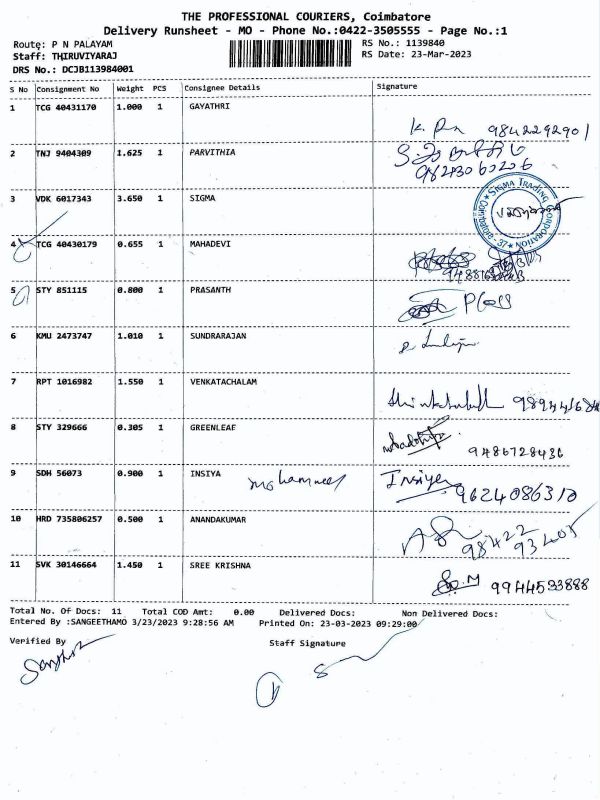 THE PROFESSIONAL COURIERS, Coimbatore
Delivery Runsheet - MO - Phone No.:0422-3505555 - Page No.:1
Route: P N PALAYAM
RS No.: 1139840
Staff: THIRUVIYARAJ
RS Date: 23-Mar-2023
DRS No.: DCJB113984001
S No Consignment No Weight PCS Consignee Details Signature
1 TCG 40431170 1.000 1 GAYATHRI
9842292901
2 TNJ 9404309 1.625 1 PARVITHIA
3 VDK 6017343 3.650 1 SIGMA
SIGMA TRADING CORPORATION
4 TCG 40430179 0.655 1 MAHADEVI
5 STY 851115 0.800 1 PRASANTH
6 KMU 2473747 1.010 1 SUNDRARAJAN
7 RPT 1016982 1.550 1 VENKATACHALAM
8 STY 329666 0.305 1 GREENLEAF
9486728436
9 SDH 56073 0.900 1 INSIYA Insiya
9624086310
10 HRD 735806257 0.500 1 ANANDAKUMAR
98422 93405
11 SVK 30146664 1.450 1 SREE KRISHNA
9944593888
Total No. Of Docs: 11 Total COD Amt: 0.00 Delivered Docs: Non Delivered Docs:
Entered By :SANGEETHAMO 3/23/2023 9:28:56 AM Printed On: 23-03-2023 09:29:00
Verified By
Staff Signature